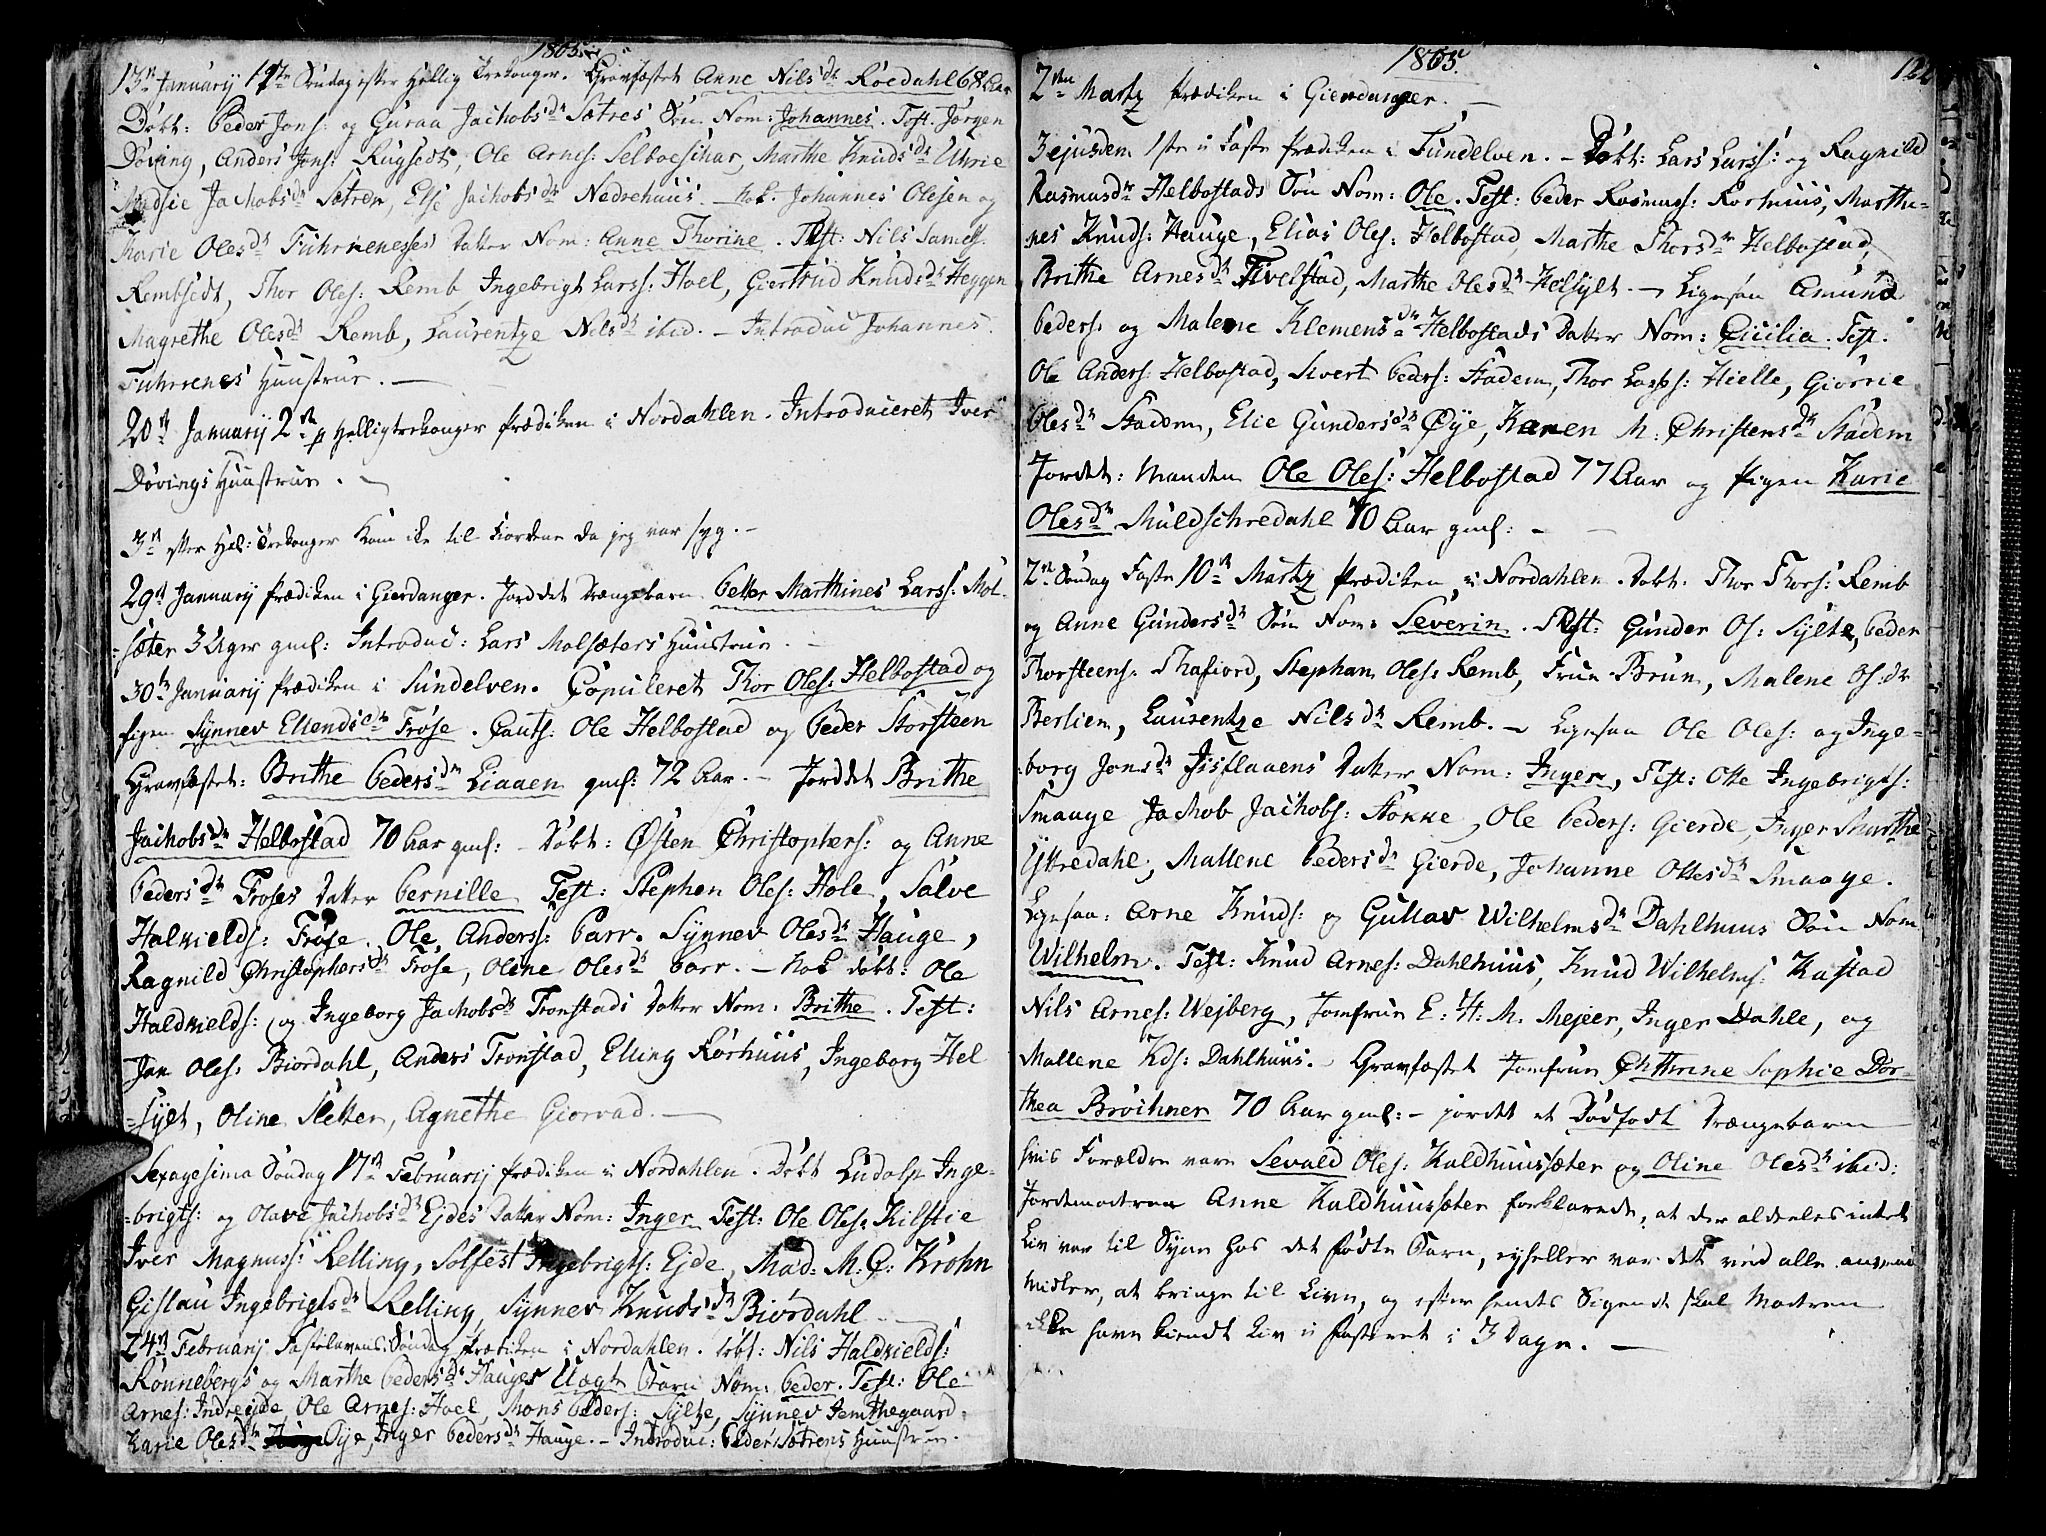 1805.
13n January 1ste Søndag efter Hellig Trekonger. Gravfæstet Anne Nilsdr Røedahl 68 Aar
Døbt: Peder Jons: og Guraa Jachobsdr Sætres Søn Nom: Johannes. Test. Jørgen
Døving, Anders Jons: Rugsedt, Ole Arnes: Selboeschar, Marthe Knudsdr Uhrie
Madsie Jachobsdr Sætren, Else Jachobsdr Nedrehuus. Nok. Johannes Olesen og
Marie Olesdr Fuhrnenesses Datter Nom: Anne Thorine. Test: Nils Lames:
Rembsedt, Thor Oles: Remb, Ingebrigt Larss: Hoel, Giertrud Knudsdr Heggen
Magrethe Olesdr Remb, Laurentze Nilsdr ibid. - Introduc Johannes
Fuhrnes Huustrue. -
20n January 2n p Helligtrekonger Prædiken i Nordahlen. Introduceret Iver
Døvings Huustrue. -
3n efter Hel: Trekonger kom ike til Fiordene da jeg var syg. -
29n January Prædiken i Gierdanger. Jorddet Drængebarn Petter Marthines Larss: Mol-
-sæter 3 Uger gml: Introduc: Lars Molsæters Huustrue. -
30n January Prædiken i Sundelven. Copuleret Thor Oles: Helbostad og
Pigen Synnev Ellendsdr Frøse. Caut: Ole Helbostad og Peder Storsteen
Gravfæstet: Brithe Pedersdr Liaaen gml: 72 Aar. - Jorddet Brithe
Jachobsdr Helbostad 70 Aar gml: - Døbt: Østen Christophers: og Anne
Pedersdr Frøses Datter Pernille Test: Stephen Oles: Hole, Salve
Halkields: Frøse. Ole Anderss: Parr. Synnev Olesdr Hauge,
Ragnild Christophersdr Frøse, Oline Olesdr Parr. - Nok døbt: Ole
Haldkields: og Ingeborg Jachobsdr Tronstads Datter Nom. Brithe. Test:
Jon Oles: Biordahl, Anders Tronstad, Elling Korhuus, Ingeborg Hel
-sylt, Oline Sletten, Agnethe Giorvad. -
Sexagesima Søndag 17n February Prædiken i Nordahlen. Døbt Ludolp Inge-
-brigts: og Olave Jachobsdr Ejdes Datter Nom: Inger Test: Ole Oles: Kilstie
Iver Magnuss: Relling, Solfest Ingebrigts: Ejde, Mad: M: C: Krohn
Gislau Ingebrigtsdr Relling, Synnev Knudsdr Biørdahl -
24n February Fastelavens Søndag Prædiken i Nordahlen. Døbt: Nils Haldkields:
Rønnebergs og Marthe Pedersdr Hauges Uægte Barn Nom: Peder. Test: Ole
Arnes: Indreejde Ole Arnes: Hoel, Mons Peders: Sylte, Synnev Jemthegaard,
Karie Olesdr Øye, Inger Pedersdr Hauge. - Introduc: Peder Sætrens Huustrue.
1805.
122
2den Martz Prædiken i Gierdanger. -
3 ejusdem 1ste i Faste Prædiken i Sundelven. - Døbt: Lars Larss: og Ragnild
Rasmusdr Helbostads Søn Nom: Ole. Test: Peder Rasmuss: Korhuus, Marthi-
nes Knuds: Hauge, Elias Oles: Helbostad, Marthe Thorsdr Helbostad,
Brithe Arnesdr Tivelstad, Marthe Olesdr Helsylt. - Ligesaa Amund
Peders: og Malene Klemensdr Helbostads Datter Nom: Cicilia. Test.
Ole Anders: Helbostad, Sivert Peders: Stadem, Thor Larss: Hielle, Giørrie
Olesdr Stadem, Elie Gundersdr Øye, Karen M: Christensdr Stadem
Jordet: Manden Ole Oles: Helbostad 77 Aar og Pigen Karie
Olesdr Muldschredahl 70 Aar gml: -
2n Søndag Faste 10n Martz Prædiken i Nordahlen. Døbt: Thor Thors: Remb
og Anne Gundersdr Søn Nom: Severin. Test: Gunder Os: Sylte, Peder
Thorsteens: Thafiord, Stephan Oles: Remb, Frue Brun, Malene Os:dr
Berlien, Laurentze Nilsdr Remb. - Ligesaa Ole Oles: og Inge-
-borg Jonsdr Jisflaaens Datter Nom: Inger, Test: Otte Ingebrigts:
Smaage Jachob Jachobs: Stokke, Ole Peders: Gierde, Inger Marthe
Yttredahl, Mallene Pedersdr Gierde, Johanne Ottesdr Smaage.
Ligesaa: Arne Knuds: og Gullav Wilhelmsdr Dahlhuus Søn Nom
Wilhelm. Test: Knud Arnes: Dahlhuus, Knud Wilhelms: Kastad
Nils Arnes: Wejberg, Jomfrue E: H: M. Mejer, Inger Dahle, og
Mallene Kds: Dahlhuus. - Gravfæstet Jomfrue Chthrine Sophie Dor-
thea Bröchner 70 Aar gml: - jordet et Dødfødt Drængebarn
hvis Forældre vare Sevald Oles: Kaldhuussæter og Oline Olesdr ibid:
Jordemoderen Anne Kaldhuussæter forklarede, at der aldeles intet
Liv var til Syne hos det fødte Barn, ej heller var det ved alle anvendte
Midler, at bringe til Live, og efter hendes Sigende skal Moderen
ikke have kiendt Liv i Fosteret i 3 Dage. -